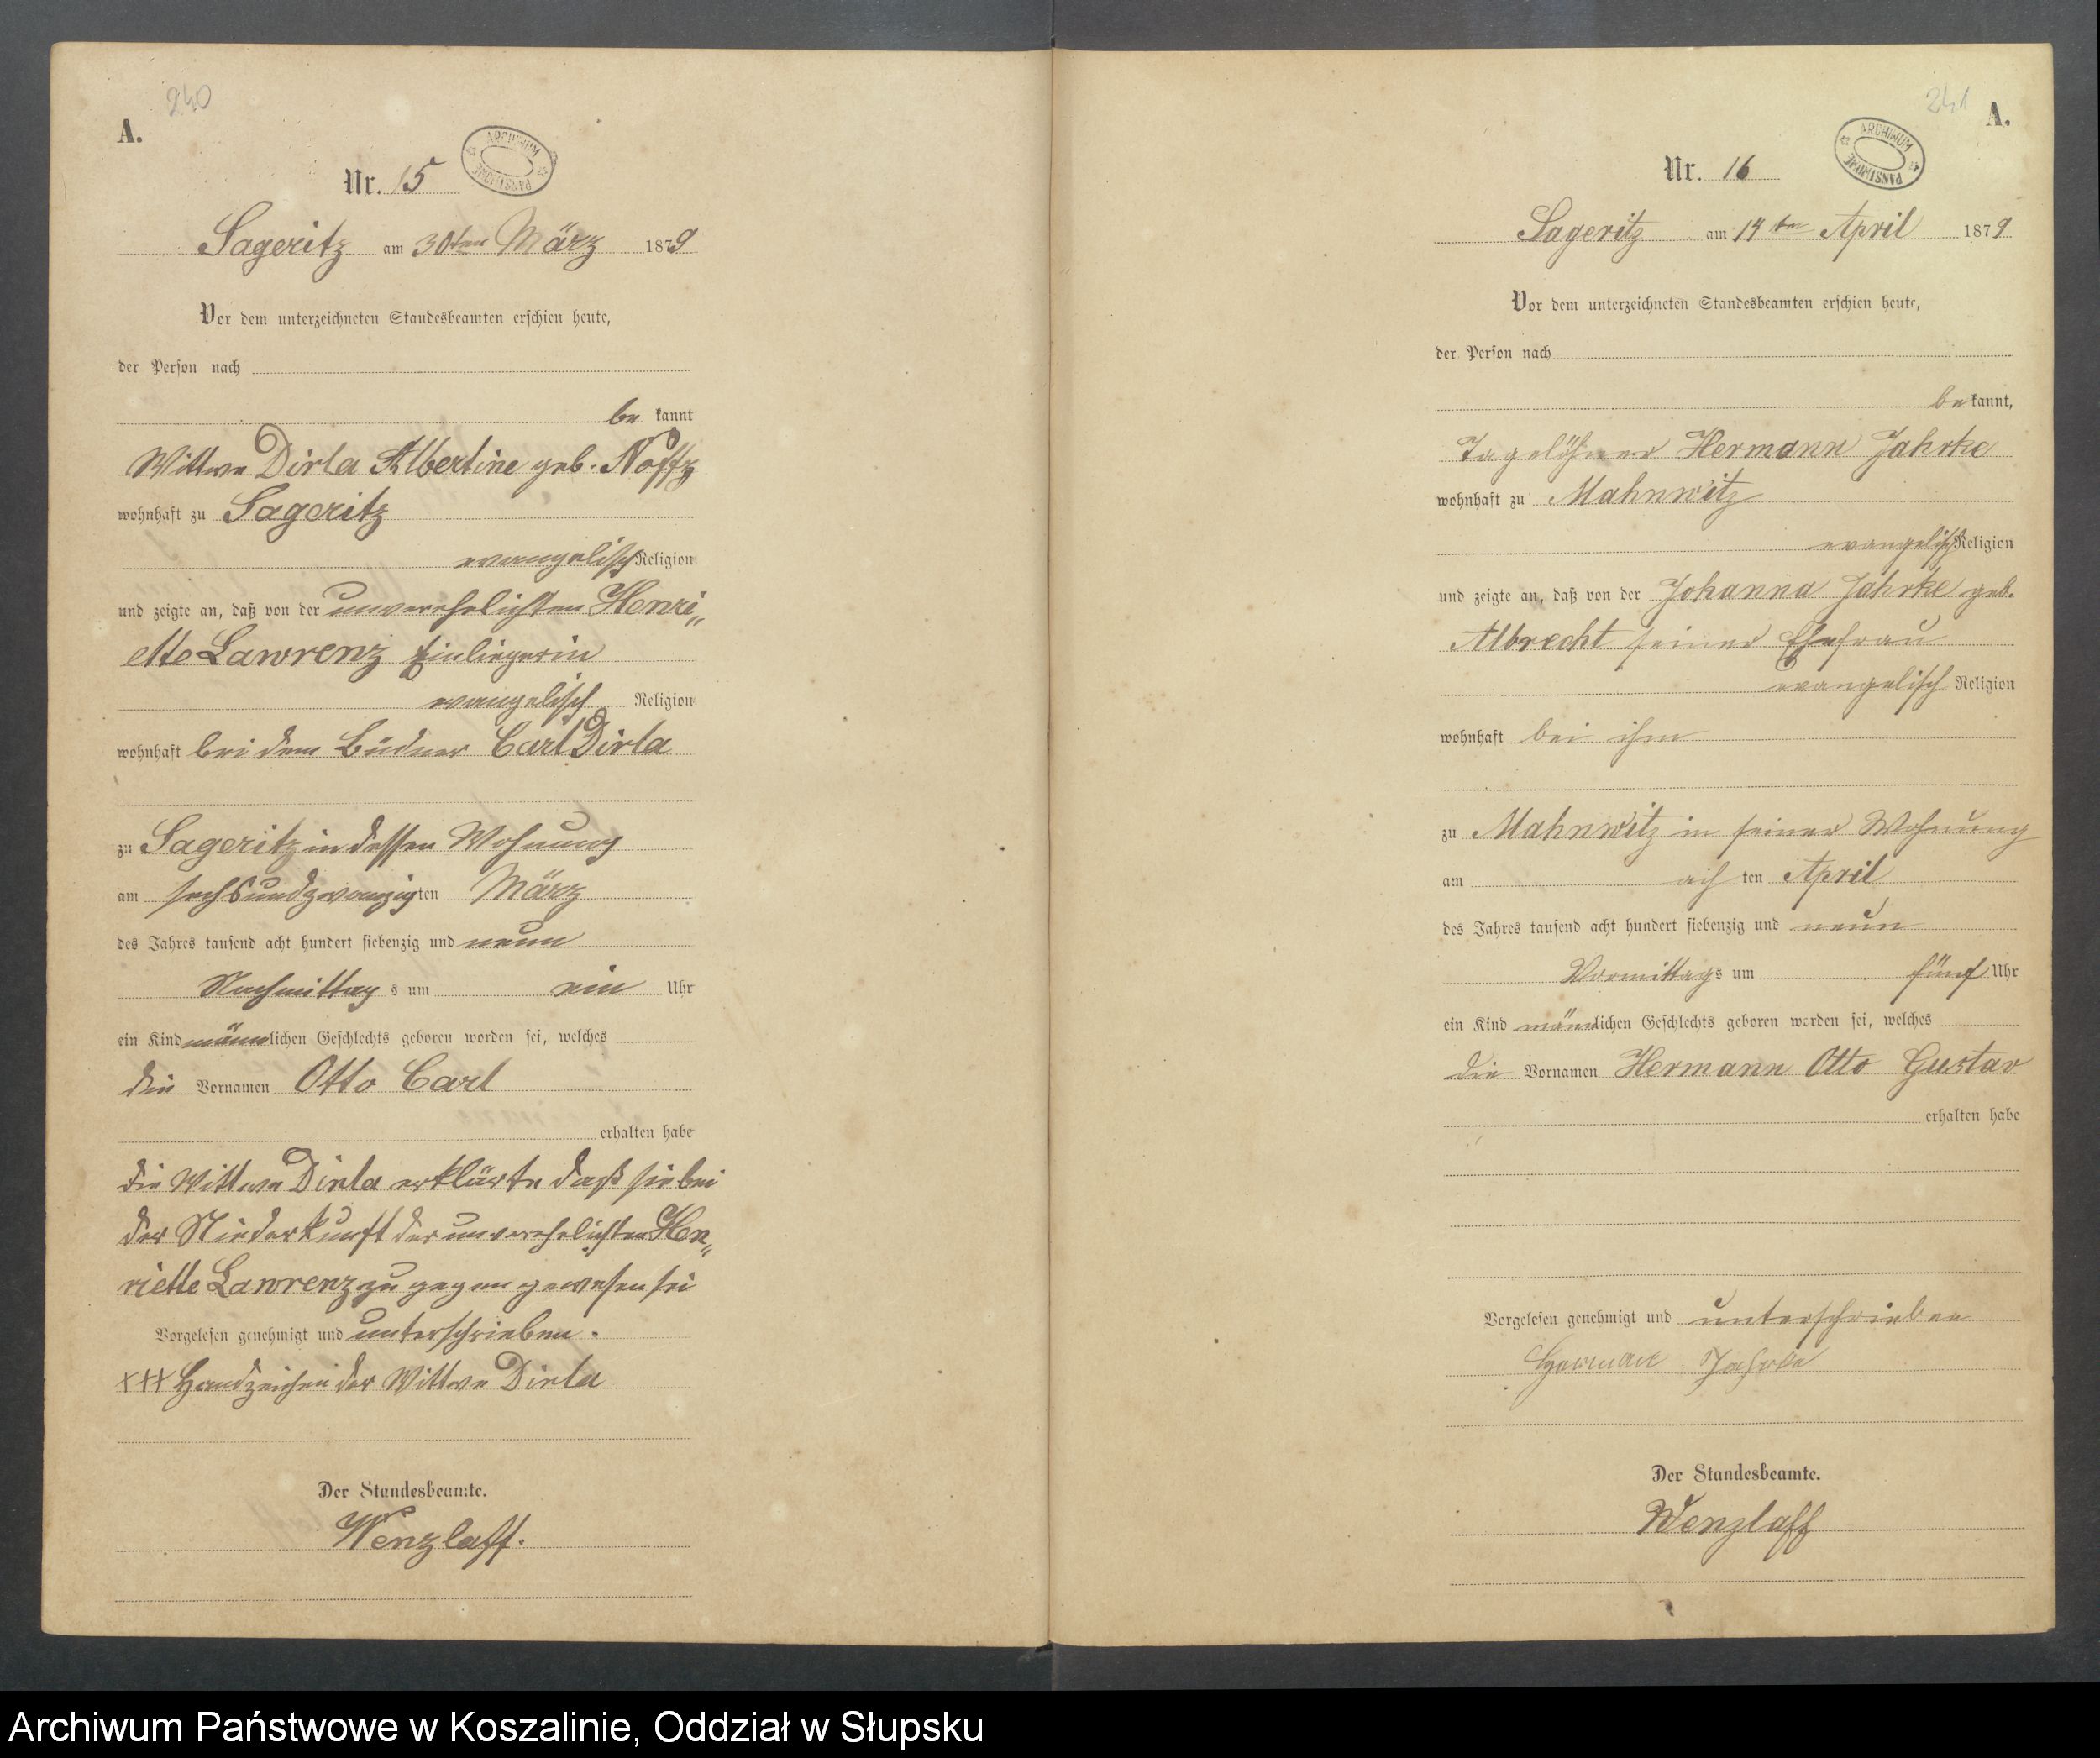 240
A.
ARCHIWUM PAŃSTWOWE
Nr. 15
Sageritz am 30ten März 1879
Vor dem unterzeichneten Standesbeamten erschien heute,
der Person nach
be kannt
Wittwe Dirla Albertine geb. Noffz
wohnhaft zu Sageritz
evangelisch Religion
und zeigte an, daß von der unverehelichten Henri„
ette Lawrenz Einliegerin
evangelisch Religion
wohnhaft bei dem Büdner Carl Dirla
zu Sageritz in dessen Wohnung
am sechsundzwanzigten März
des Jahres tausend acht hundert siebenzig und neun
Nachmittag s um ein Uhr
ein Kind männlichen Geschlechts geboren worden sei, welches
die Vornamen Otto Carl
erhalten habe
die Wittwe Dirla erklärte daß sie bei
der Niederkunft der unverehelichten Hen„
riette Lawrenz zu gegen gewesen sei
Vorgelesen genehmigt und unterschrieben.
XXX Handzeichen der Wittwe Dirla
Der Standesbeamte.
Wenzlaff.
241
A.
ARCHIWUM PAŃSTWOWE
Nr. 16
Sageritz am 14ten April 1879
Vor dem unterzeichneten Standesbeamten erschien heute,
der Person nach
be kannt,
Tagelöhner Hermann Jahrke
wohnhaft zu Mahnwitz
evangelisch Religion
und zeigte an, daß von der Johanna Jahrke geb.
Albrecht seiner Ehefrau
evangelisch Religion
wohnhaft bei ihm
zu Mahnwitz in seiner Wohnung
am ach ten April
des Jahres tausend acht hundert siebenzig und neun
Vormittags um fünf Uhr
ein Kind männlichen Geschlechts geboren worden sei, welches
die Vornamen Hermann Otto Gustav
erhalten habe
Vorgelesen genehmigt und unterschrieben
Herman Jahrke
Der Standesbeamte.
Wenzlaff
Archiwum Państwowe w Koszalinie, Oddział w Słupsku